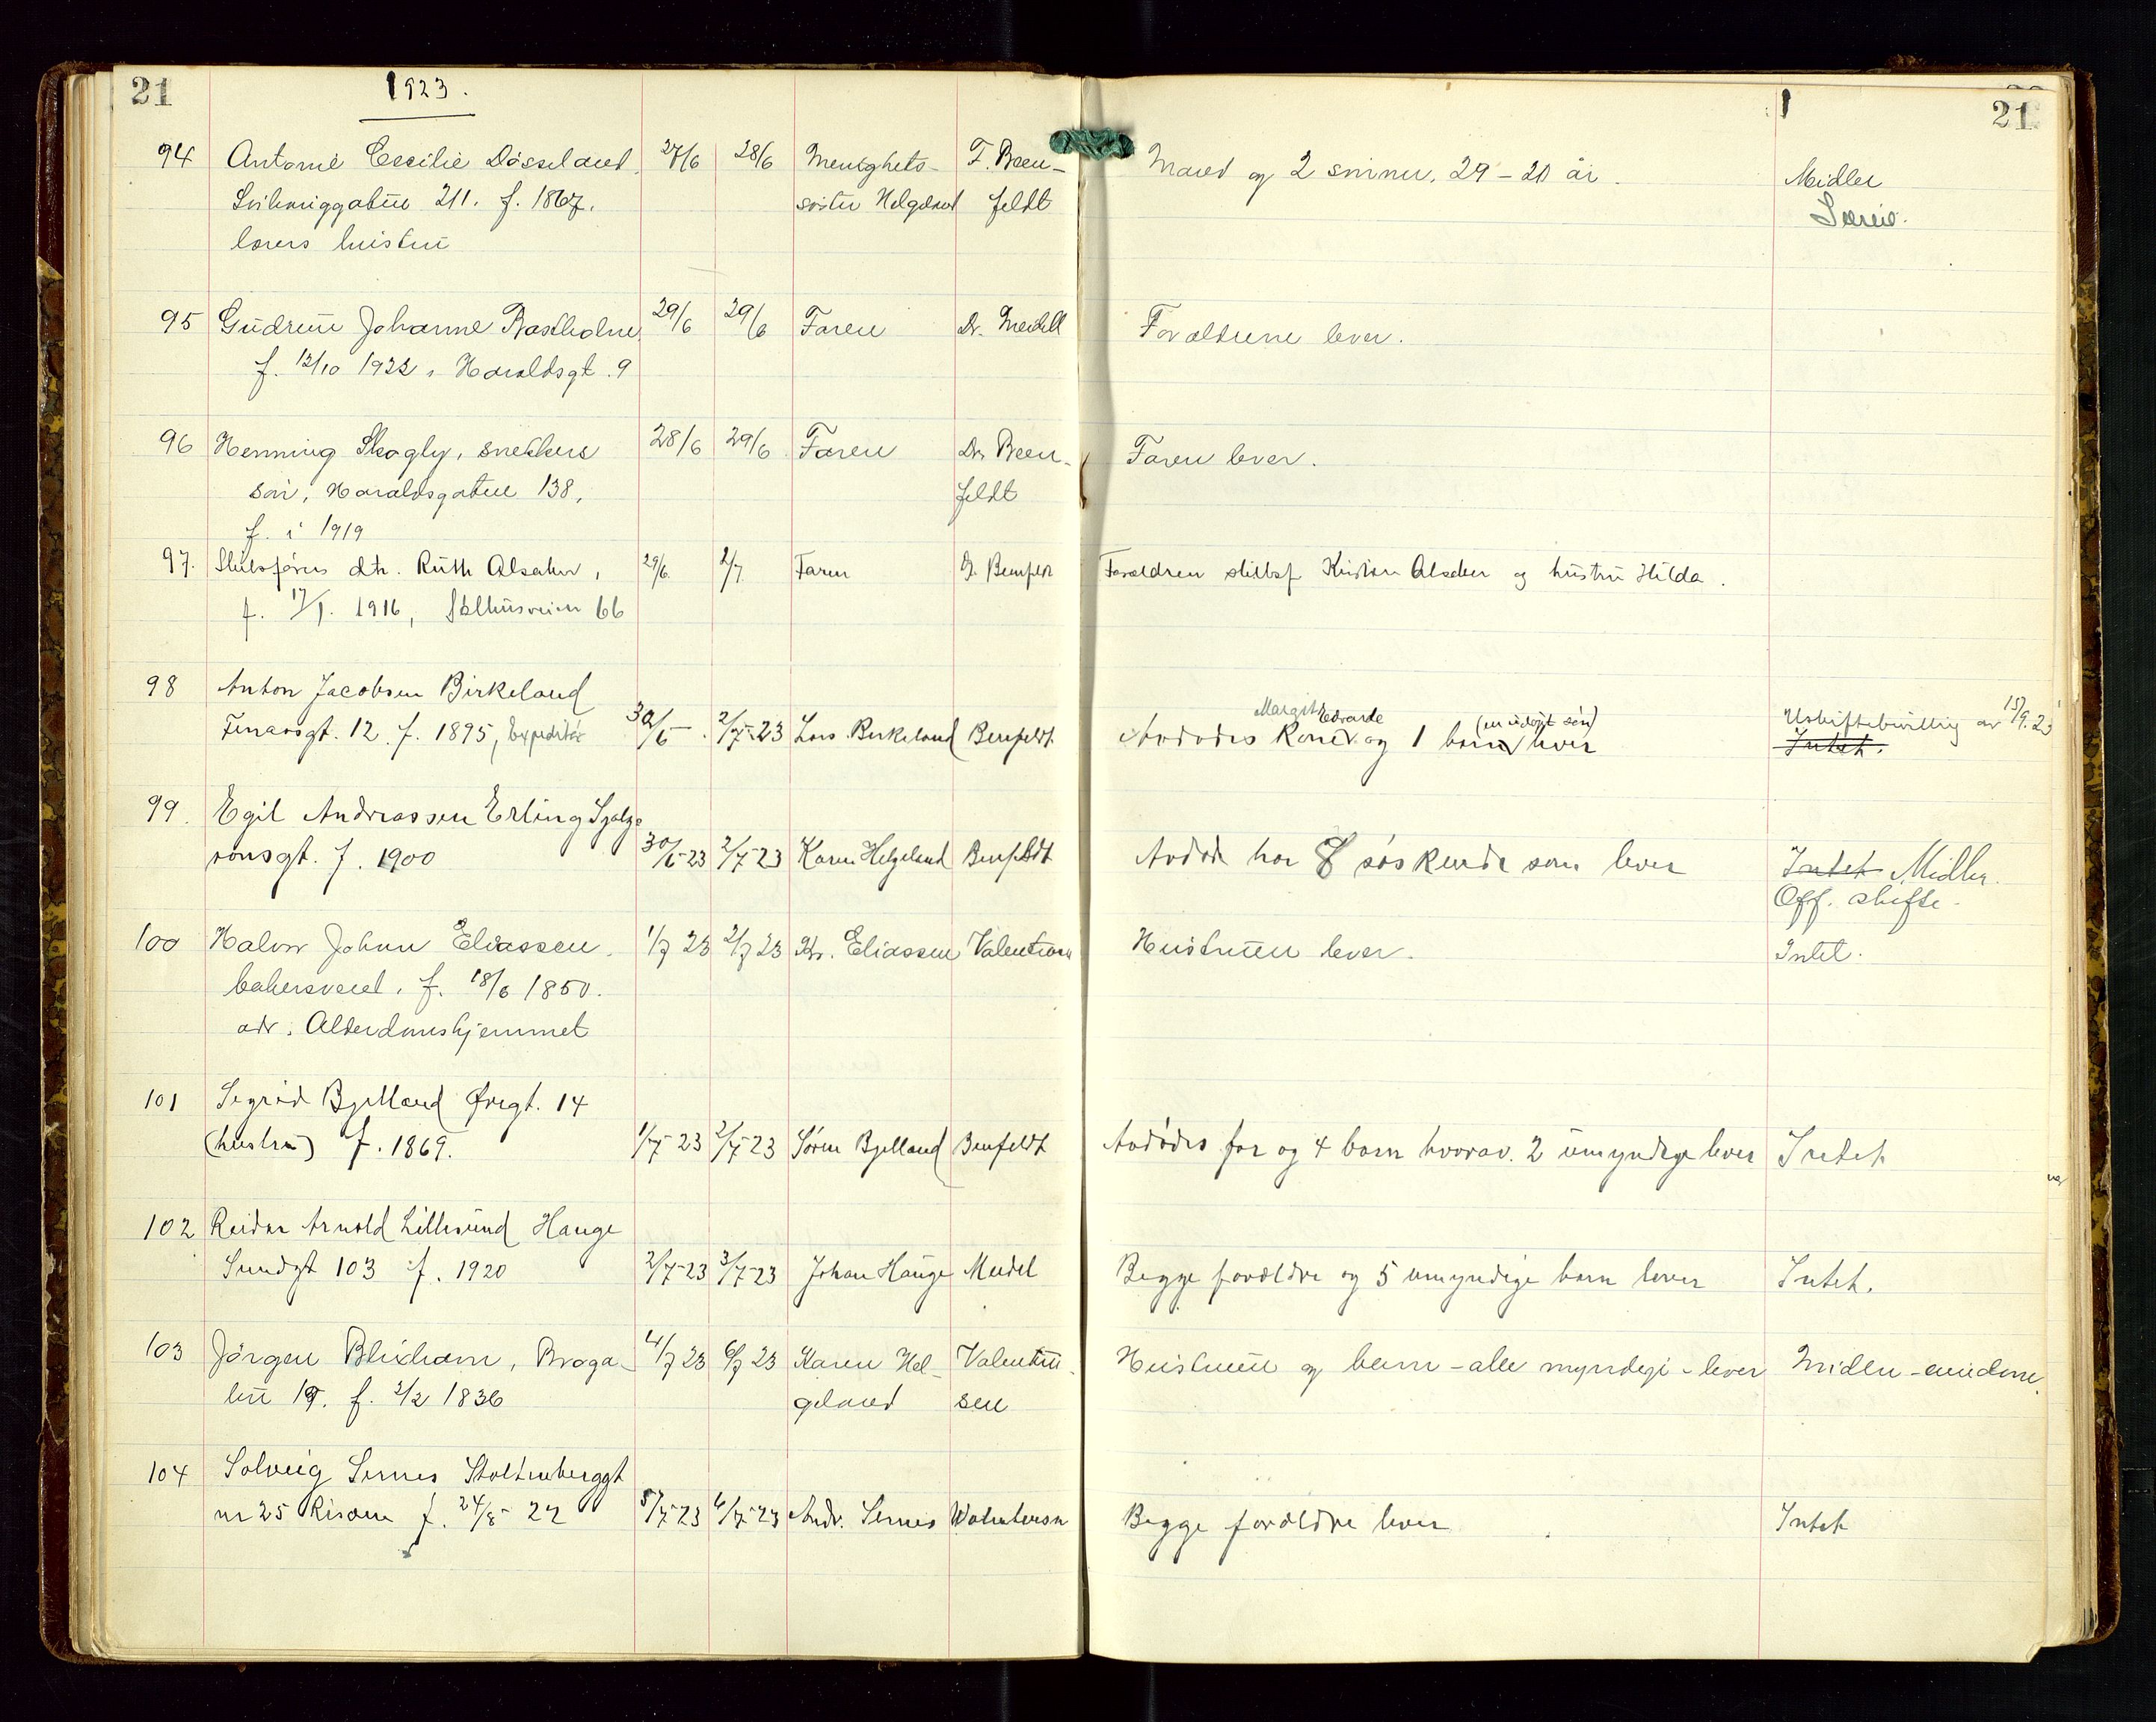 21
1923.
21
94 Antonie Cecilie Dåsseland 27/6 28/6 Menighets- F. Been- Mand og 2 sønner, 29 – 20 år. Midler
211. f. 1867. søster Helgeland feldt
lærers hustru
95 Gudrun Johanne Rostholm 29/6 29/6 Faren Dr. Meidell Forældrene lever.
f. 12/10 1922, Haraldsgt. 9
96 Henning Skogly, snekkers 28/6 29/6 Faren Dr. Been- Faren lever.
søn, Haraldsgaten 138, feldt
f. i 1919
97. dtr. Ruth Alsaker, 29/6 2/7 Faren Forældren Kristian Alsaker og hustru Hilda.
f. 17/1. 1916, 66
98 Anton Jacobsen Birkeland
Margit Edvarda (en udøpt søn) Uskiftebevilling av 15/9.23
12. f. 1895, Expeditør 30/6 2/7-23 Lars Birkeland Benfeldt Avdødes Kone og 1 barn lever Intet.
99. Egil Andreassen Erling Skjalgs
sonsgt. f. 1900 30/6-23 2/7-23 Karen Helgeland Benfeldt Avdøde har 8 søskende som lever Intet Midler.
Off. skifte.
100 Halvor Johan Eliassen. 1/7 23 2/7 23 Kr. Eliassen Valentinsen Hustruen lever. Intet.
bakersvend. f. 18/6 1850.
adr. Alderdomshjemmet
101 Sigrid Bjelland Øvregt. 14
(hustru) f. 1869. 1/7-23 2/7-23 Søren Bjelland Benfeldt Avdødes far og 4 barn hvorav 2 umyndige lever Intet
102 Reidar Arnold Lillesund Hauge
Sundgt 103 f. 1920 2/7-23 3/7-23 Johan Hauge Meidel Begge forældre og 5 umyndige barn lever Intet.
103 Jørgen Blixhavn, Braga- 4/7 23 6/7 23 Karen Hel- Valentin- Hustruen og barn – alle myndige – lever
ten 19. f. 2/2 1836 geland sen
104 Solveig Sernes Stoltenberggt
nr 25 Risøen f. 24/8-22 5/7-23 6/7-23 Andr. Sernes Begge forældre lever Intet